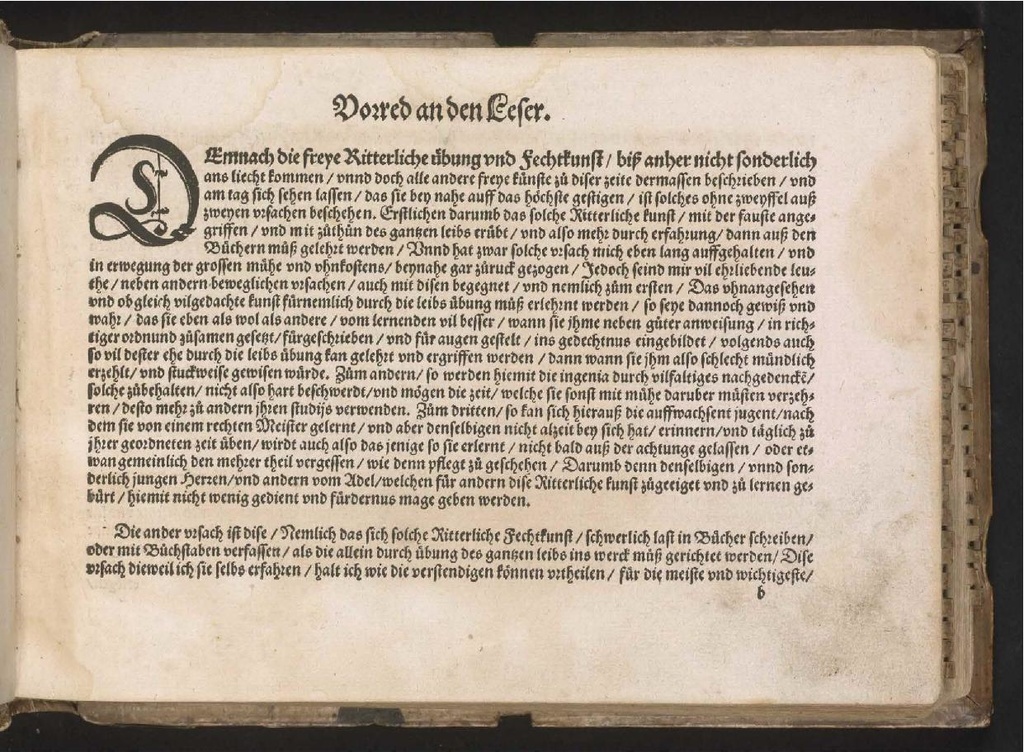 Vorred an den Leser.
DEmnach die freye Ritterliche übung vnd Fechtkunst / biß anher nicht sonderlich
ans liecht kommen / vnnd doch alle andere freye künste zů diser zeite dermassen beschrieben / vnd
am tag sich sehen lassen / das sie bey nahe auff das höchste gestigen / ist solches ohne zweyffel auß
zweyen vrsachen beschehen. Erstlichen darumb das solche Ritterliche kunst / mit der fauste ange⸗
griffen / vnd mit zůthůn des gantzen leibs erübt / vnd also mehr durch erfahrung / dann auß den
Büchern můß gelehrt werden / Vnnd hat zwar solche vrsach mich eben lang auffgehalten / vnd
in erwegung der grossen mühe vnd vhnkostens / beynahe gar zůruck gezogen / Jedoch seind mir vil ehrliebende leu⸗
the / neben andern beweglichen vrsachen / auch mit disen begegnet / vnd nemlich zům ersten / Das vhnangesehen
vnd ob gleich vilgedachte kunst fürnemlich durch die leibs übung můß erlehrnt werden / so seye dannoch gewiß vnd
wahr / das sie eben als wol als andere / vom lernenden vil besser / wann sie jhme neben gůter anweisung / in rich⸗
tiger ordnund zůsamen gesetzt / fürgeschrieben / vnd für augen gestelt / ins gedechtnus eingebildet / volgends auch
so vil dester ehe durch die leibs übung kan gelehrt vnd ergriffen werden / dann wann sie jhm also schlecht mündlich
erzehlt / vnd stuckweise gewisen würde. Zům andern / so werden hiemit die ingenia durch vilfaltiges nachgedenckē /
solche zůbehalten / nicht also hart beschwerdt / vnd mögen die zeit / welche sie sonst mit mühe daruber müsten verzeh⸗
ren / desto mehr zů andern jhren studijs verwenden. Zům dritten / so kan sich hierauß die auffwachsent jugent / nach
dem sie von einem rechten Meister gelernt / vnd aber denselbigen nicht alzeit bey sich hat / erinnern / vnd täglich zů
jhrer geordneten zeit üben / wirdt auch also das jenige so sie erlernt / nicht bald auß der achtunge gelassen / oder et⸗
wan gemeinlich den mehrer theil vergessen / wie denn pflegt zů geschehen / Darumb denn denselbigen / vnnd son⸗
derlich jungen Herzen / vnd andern vom Adel / welchen für andern dise Ritterliche kunst zůgeeiget vnd zů lernen ge⸗
bürt / hiemit nicht wenig gedient vnd fürdernus mage geben werden.
Die ander vrsach ist dise / Nemlich das sich solche Ritterliche Fechtkunst / schwerlich last in Bücher schreiben /
oder mit Bůchstaben verfassen / als die allein durch übung des gantzen leibs ins werck můß gerichtet werden / Dise
vrsach dieweil ich sie selbs erfahren / halt ich wie die verstendigen können vrtheilen / für die meiste vnd wichtigeste /
b